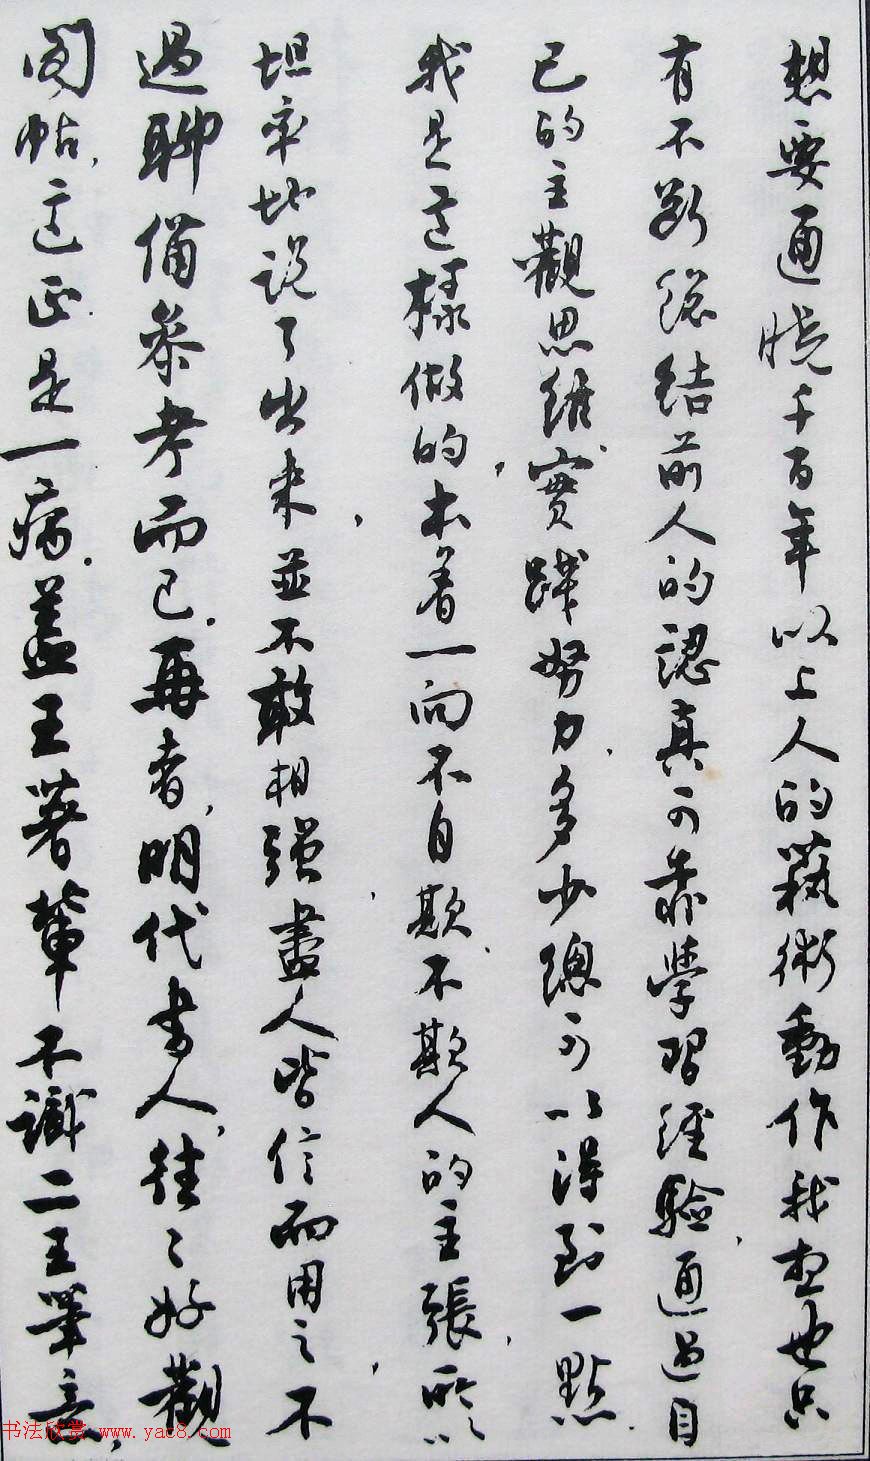 想要通曉千百年以上人的藝術動作我想也只
有不斷總結前人的認真可靠學習經驗，通過自
己的主觀思維，實踐努力，多少總可以得到一點。
我是這樣做的，本着一向不自欺，不欺人的主張，所以
坦率地説了出來，並不敢相强，盡人皆信而用之，不
過聊備參考而已。再者，明代書人，往〻好觀
閣帖，這正是一病。蓋王著輩不識二王筆意，
书法欣赏 www.yac8.com